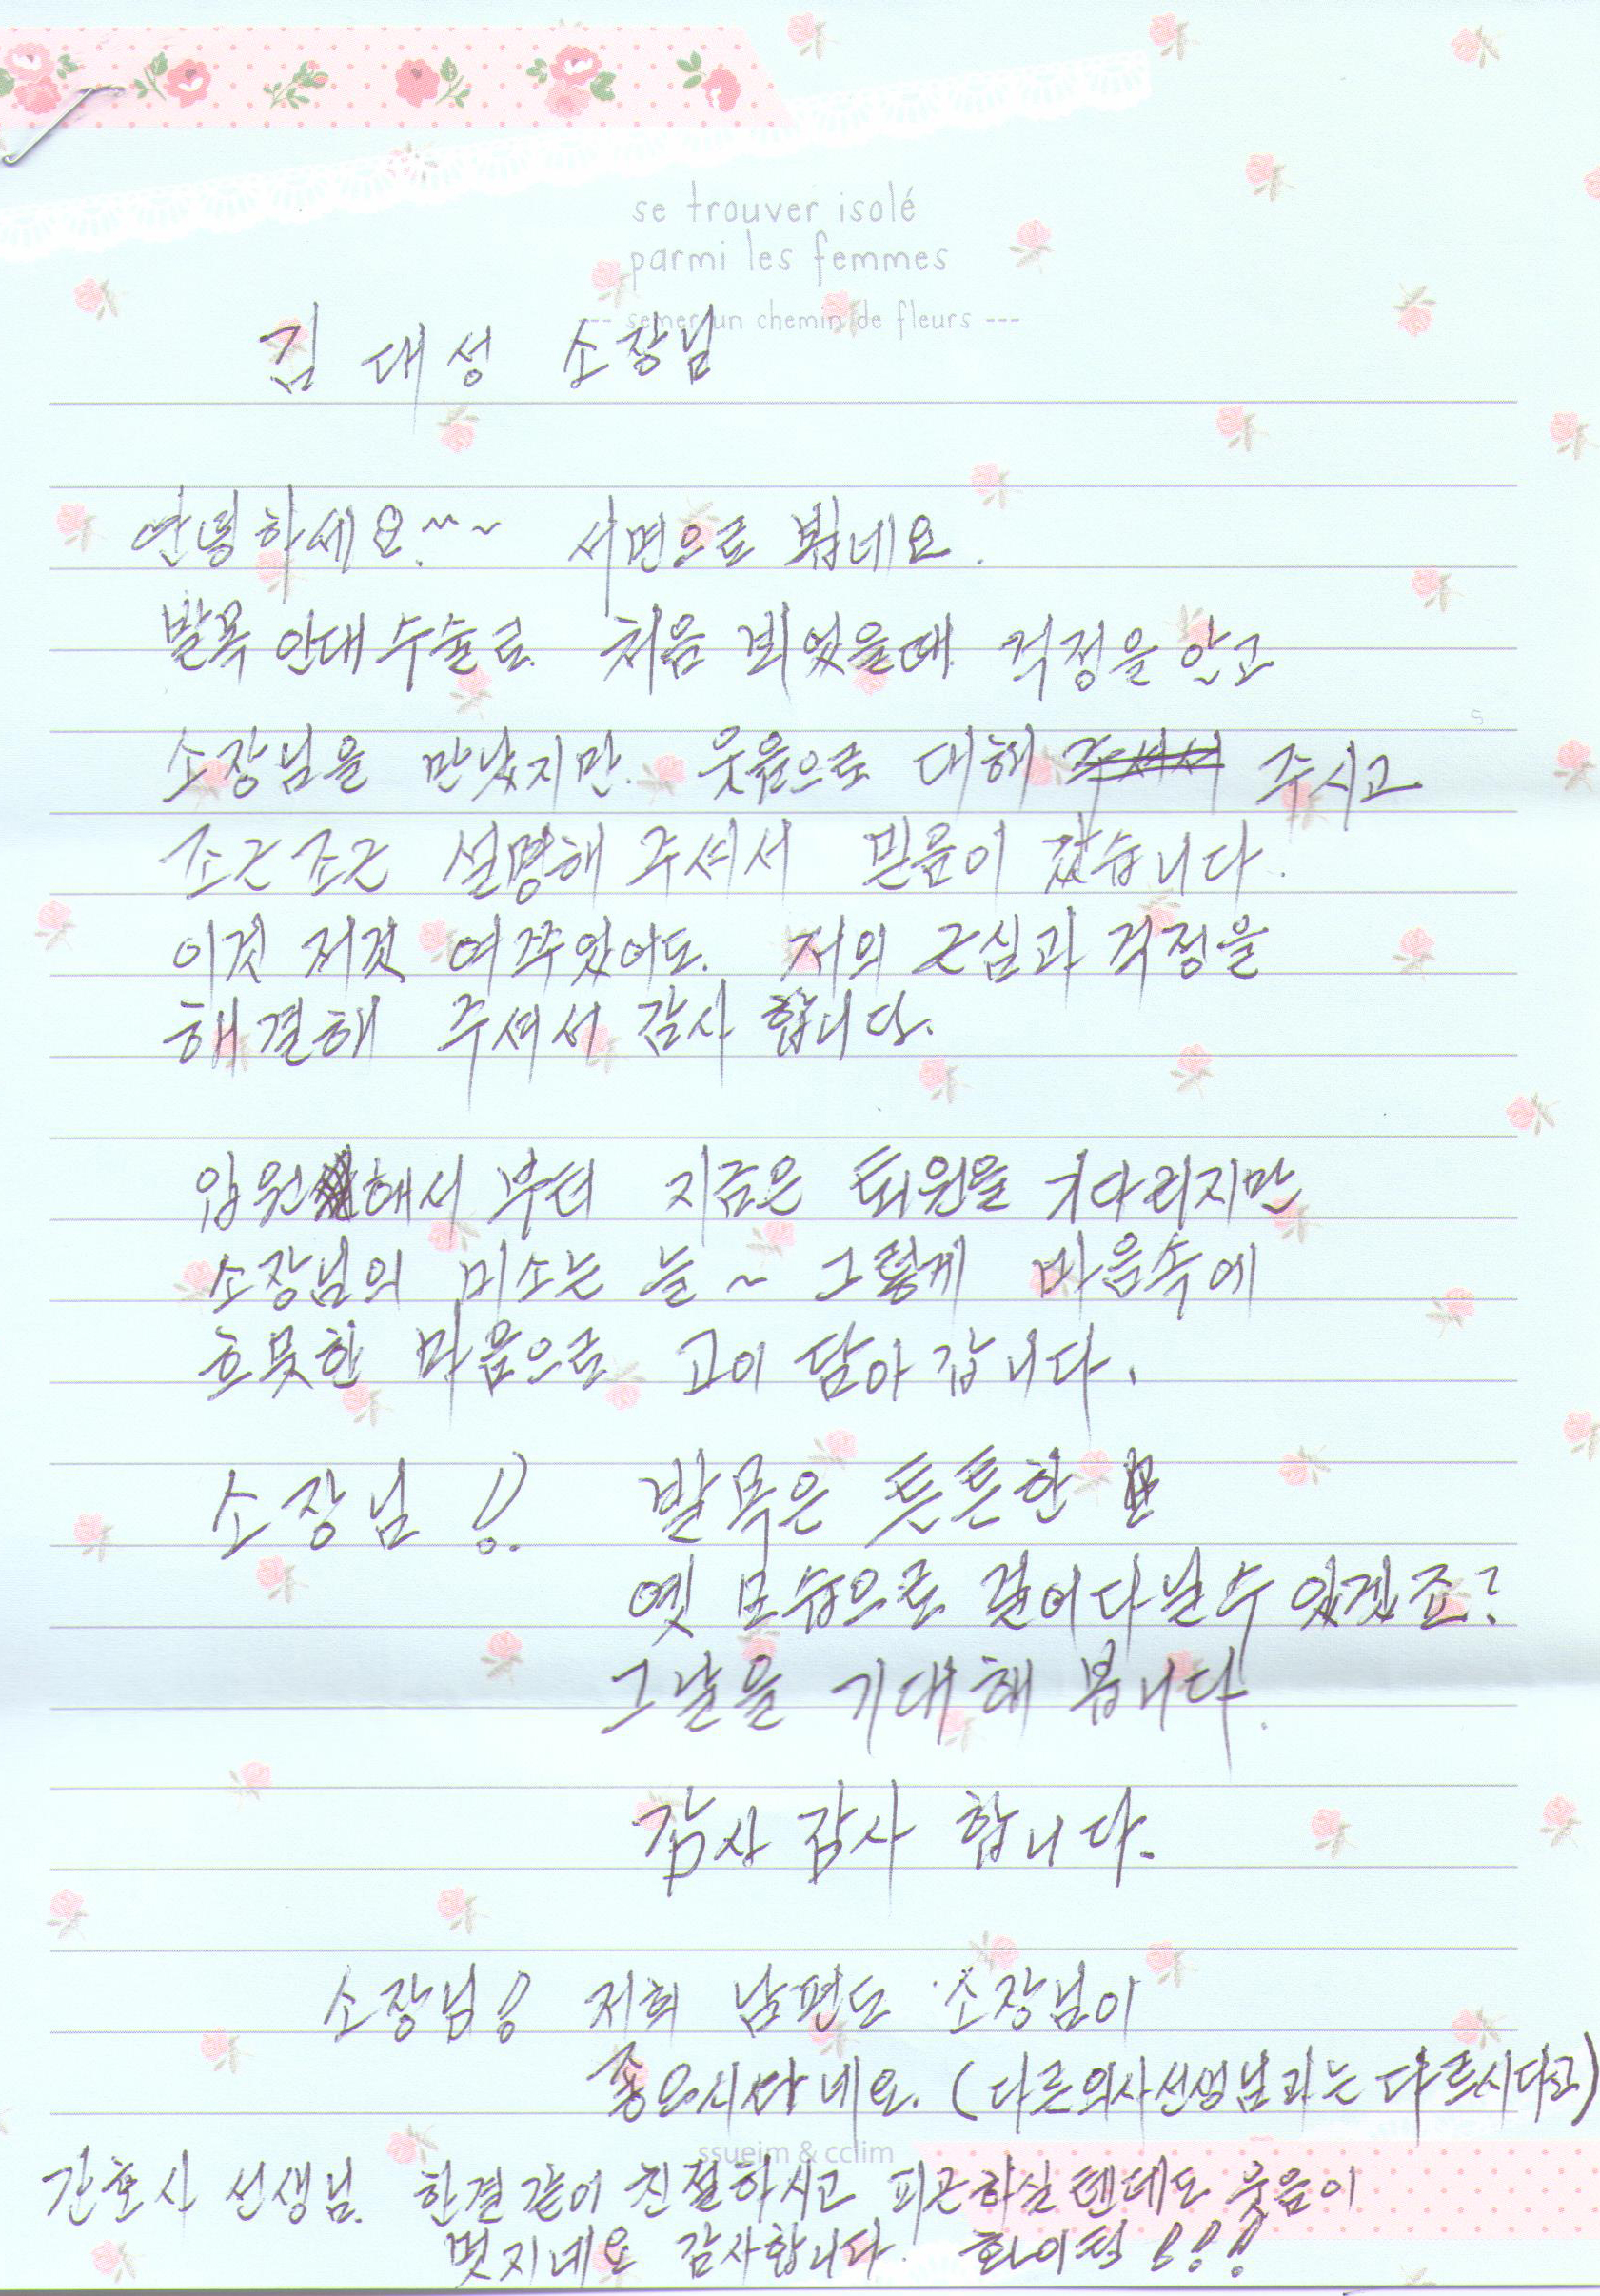 se trouver isolé
parmi les femmes
--- semer un chemin de fleurs ---
김 대성 소장님
안녕하세요.~~ 서면으로 뵙네요.
발목 인대 수술로 처음 뵈었을때 걱정을 안고
소장님을 만났지만. 웃음으로 대해 주셔서 주시고
조근조근 설명해 주셔서 믿음이 갔습니다.
이것 저것 여쭈었어도. 저의 근심과 걱정을
해결해 주셔서 감사 합니다.
입원해서 부터 지금은 퇴원을 기다리지만
소장님의 미소는 늘 ~ 그렇게 마음속에
흐뭇한 마음으로 고이 담아 갑니다.
소장님!! 발목은 튼튼한
옛 모습으로 걸어다닐수 있겠죠?
그날을 기대해 봅니다.
감사 감사 합니다.
소장님! 저희 남편도 소장님이
좋으시다네요. (다른의사선생님과는 다르시다고)
ssueim & cclim
간호사 선생님. 한결같이 친절하시고 피곤하실텐데도 웃음이
멋지네요 감사합니다. 화이팅!!!